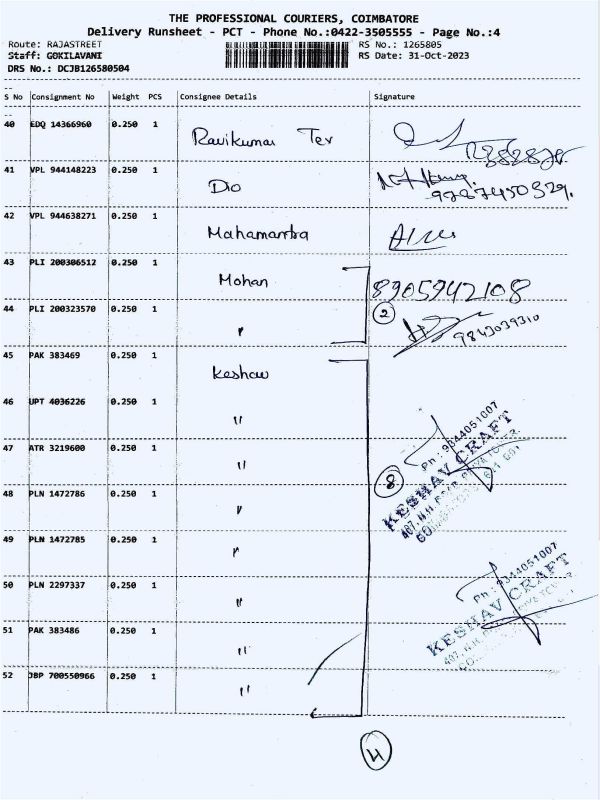 THE PROFESSIONAL COURIERS, COIMBATORE
Delivery Runsheet - PCT - Phone No.:0422-3505555 - Page No.:4
Route: RAJASTREET RS No.: 1265805
Staff: GOKILAVANI RS Date: 31-Oct-2023
DRS No.: DCJB126580504
S No Consignment No Weight PCS Consignee Details Signature
40 EDQ 14366960 0.250 1 Ravikumar Tex
41 VPL 944148223 0.250 1 Dio
42 VPL 944638271 0.250 1 Mahamantra
43 PLI 200306512 0.250 1 Mohan 8905942108
44 PLI 200323570 0.250 1 " 2 9843039310
45 PAK 383469 0.250 1 Keshav
46 UPT 4036226 0.250 1 "
Ph : 9344051007
47 ATR 3219600 0.250 1 "
KESHAV CRAFT
48 PLN 1472786 0.250 1 " 8
49 PLN 1472785 0.250 1 "
50 PLN 2297337 0.250 1 "
Ph : 9344051007
51 PAK 383486 0.250 1 "
KESHAV CRAFT
52 JBP 700550966 0.250 1 "
4